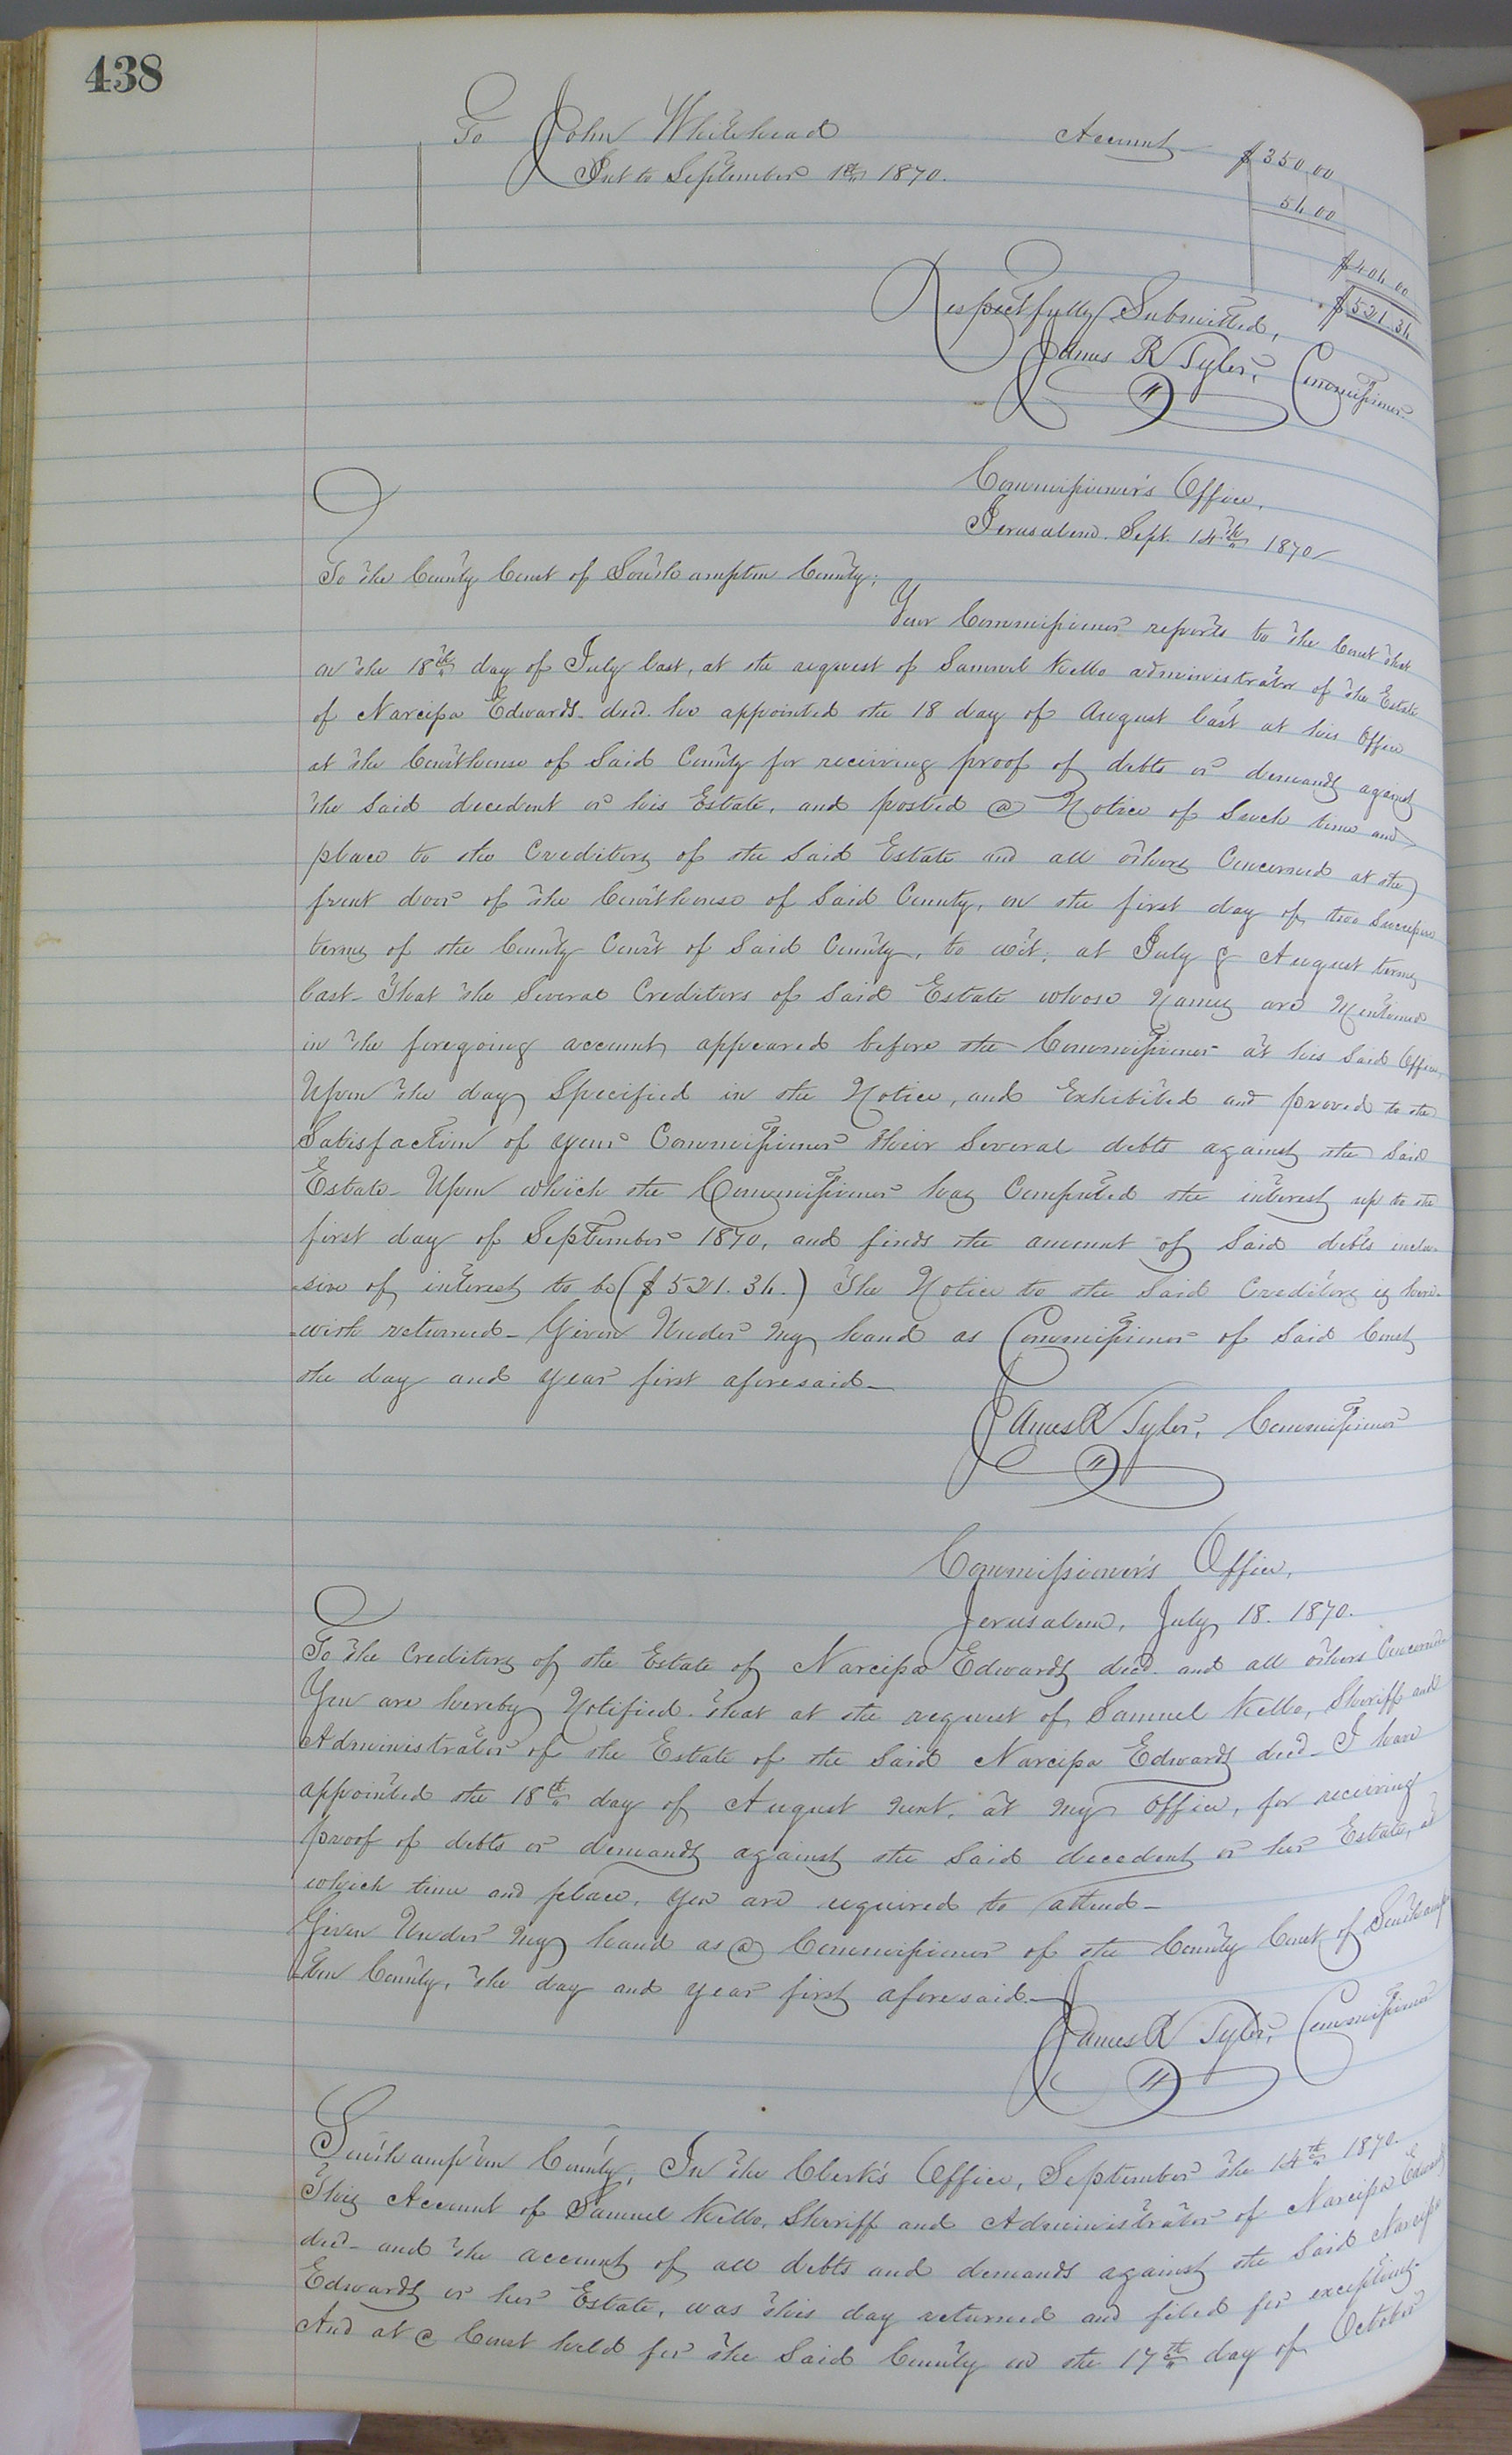 438
To John Whitehead Account $350.00
Int to September 1st 1870. 54.00
$404.00
$521.34
Respectfully Submitted,
James R Tyler, Commissioner
Commissioner's Office,
Jerusalem. Sept. 14th 1870
To the County Court of Southampton County;
Your Commissioner reports to the Court that
on the 18th day of July last, at the request of Samuel Kello administrator of the Estate
of Narcissa Edwards decd. he appointed the 18 day of August last at his Office
at the Courthouse of Said County for receiving proof of debts or demands against
the Said decedent or his Estate, and posted a Notice of Such time and
place to the Creditors of the Said Estate and all others Concerned at the
front door of the Courthouse of Said County, on the first day of two Successive
terms of the County Court of Said County, to wit; at July & August terms
last- That the Several Creditors of Said Estate whose Names are Mentioned
in the foregoing account, appeared before the Commissioner at his Said Office,
Upon the day Specified in the Notice, and Exhibited and proved to the
Satisfaction of your Commissioner their Several debts against the Said
Estate- Upon which the Commissioner has Computed the interest up to the
first day of September 1870, and finds the amount of Said debts inclu-
-sive of interest to be ($521.34.) The Notice to the Said Creditors is here-
-with returned- Given Under My hand as Commissioner of Said Court
the day and year first aforesaid-
James R Tyler, Commissioner
Commissioner's Office,
Jerusalem, July 18. 1870.
To the Creditors of the Estate of Narcissa Edwards decd. and all others Concerned
You are hereby Notified that at the request of Samuel Kello, Sheriff and
Administrator of the Estate of the Said Narcissa Edwards decd- I have
appointed the 18th day of August next, at my Office, for receiving
proof of debts or demands against the Said decedent or her Estate, at
which time and place, you are required to attend-
Given Under My hand as a Commissioner of the County Court of Southamp
-ton County, the day and year first aforesaid.-
James R Tyler, Commissioner
Southampton County, In the Clerk's Office, September the 14th 1870.
This Account of Samuel Kello, Sheriff and Administrator of Narcissa Edwards
decd- and the account of all debts and demands against the Said Narcissa
Edwards or her Estate, was this day returned and filed for exceptions-
And at a Court held for the Said County on the 17th day of October